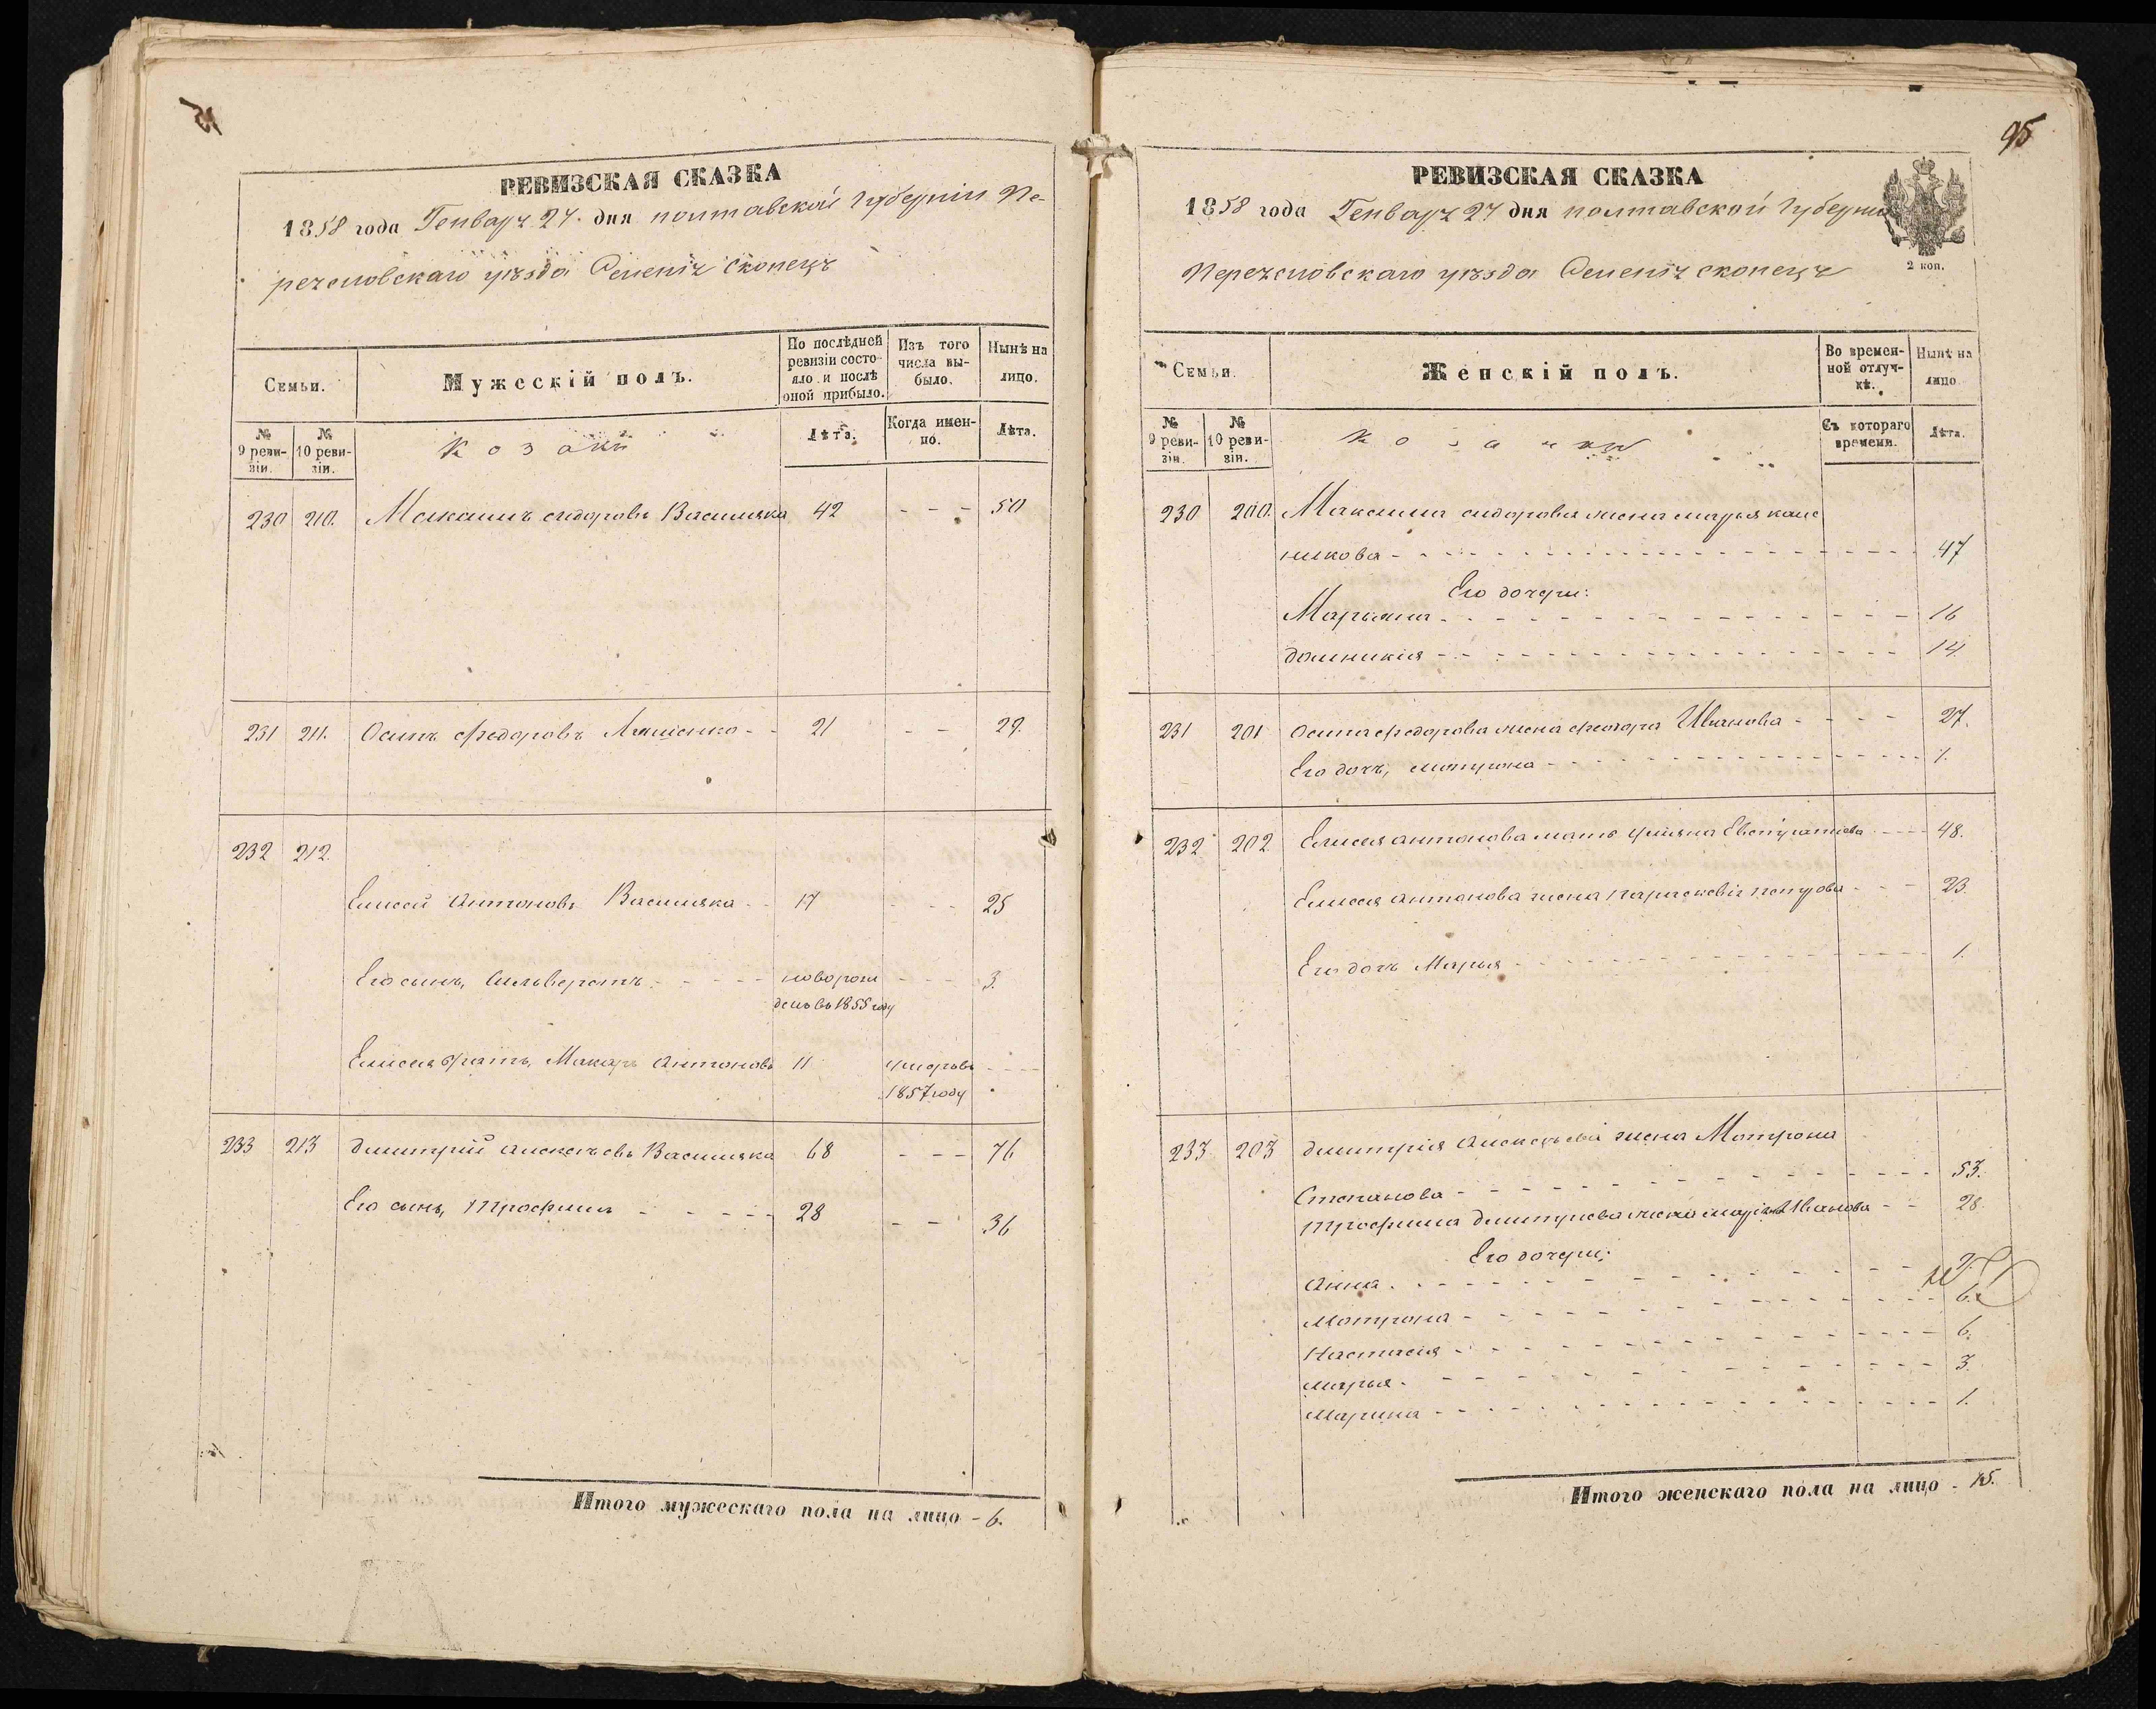 РЕВИЗСКАЯ СКАЗКА
1858 года Генваря 27. дня полтавской Губерніи Пе-
реяславскаго уѣзда Селенія Скопецъ
Семьи.
Мужескій полъ.
По послѣдней ревизіи состояло и послѣ оной прибыло.
Изъ того числа выбыло.
Нынѣ на лицо.
№ 9 ревизіи.
№ 10 ревизіи.
Козаки
Лѣта.
Когда именно.
Лѣта.
230 210. Максимъ сидоровъ Василяка 42 - - - 50
231 211. Осипъ федоровъ Ляшенко - - 21 - - 29.
232 212.
Елисей Антоновъ Василяка - - 17 - - - 25
Его сынъ, Сильверстъ - - - - - новорож - - - 3.
денъ въ 1855 году
Елисея братъ, Макаръ Антоновъ 11 умеръ въ - - -
1857 году
233 213 Димитрій Алексѣевъ Василяка 68 - - - 76
Его сынъ, Трофимъ - - - - - 28 - - 36
Итого мужескаго пола на лицо - 6.
95
РЕВИЗСКАЯ СКАЗКА
1858 года Генваря 27 дня полтавской Губерніи
Переяславскаго уѣзда Селенія скопецъ
2 коп.
Семьи.
Женскій полъ.
Во временной отлучкѣ.
Нынѣ на лицо.
№ 9 ревизіи.
№ 10 ревизіи.
Козачки
Съ котораго времени.
Лѣта.
230 200. Максима сидорова жена марья
никова - - - 47
Его дочери:
Марьяна - - - 16
домникія - - - 14.
231 201 Осипа федорова жена Иванова - - - 27.
Его дочь, мотрона - - - 1.
232 202. Елисея антонова мать улияна Евстратіева - - - 48.
Елисея антонова жена параскевія петрова - - - 23.
Его дочь Марья - - - 1.
233. 203 Димитрія Алексѣева жена Мотрона
Степанова - - - 53.
Трофима Димитріева жена марія Иванова - - 28.
Его дочери:
Анна - - -
Мотрона - - - 6.
Настасия - - - 6.
марья - - - 3.
Марина - - - 1.
Итого женскаго пола на лицо - 15.